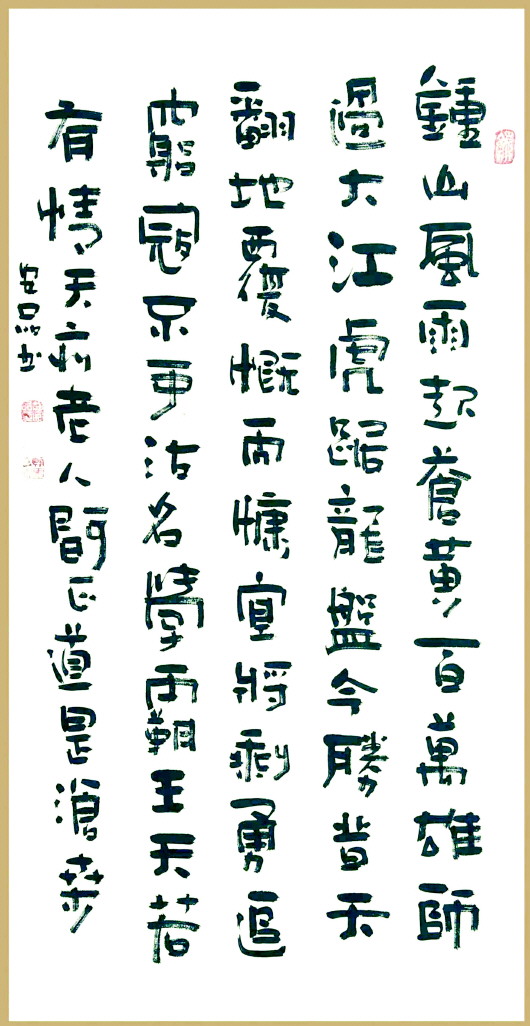 鍾山風雨起蒼黃百萬雄師
過大江虎踞龍盤今勝昔天
翻地覆慨而慷宜將剩勇追
窮寇不可沽名學霸王天若
有情天亦老人間正道是滄桑
品书